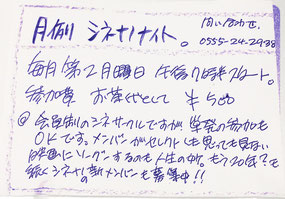 月例 シネナノナイト。 問い合わせ.
0555-24-2938
毎月第2月曜日 午后7時半スタート。
参加費 お茶代として ¥500
◎ 会員制のシネサークルですが 単発の参加も
OKです。メンバーがセレクト も思っても見ない
映画にハングするのも人生の
続くシネナノ 新メンバーも募集中!!